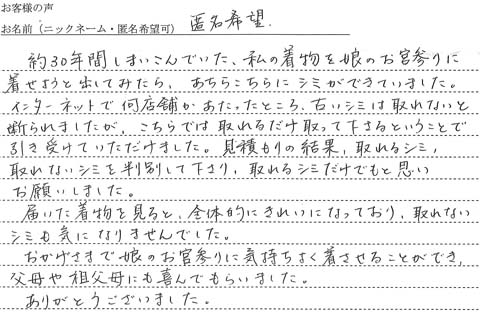 お客様の声
お名前（ニックネーム・匿名希望可） 匿名希望．
約30年間しまいこんでいた、私の着物を娘のお宮参りに
着せようと出してみたら、あちらこちらにシミができていました。
インターネットで何店舗かあたったところ、古いシミは取れないと
断られましたが、こちらでは取れるだけ取って下さるということで
引き受けていただけました。見積もりの結果、取れるシミ、
取れないシミを判別して下さり、取れるシミだけでもと思い
お願いしました。
届いた着物を見ると、全体的にきれいになっており、取れない
シミも気になりませんでした。
おかげさまで娘のお宮参りに気持ちよく着させることができ、
父母や祖父母にも喜んでもらいました。
ありがとうございました。